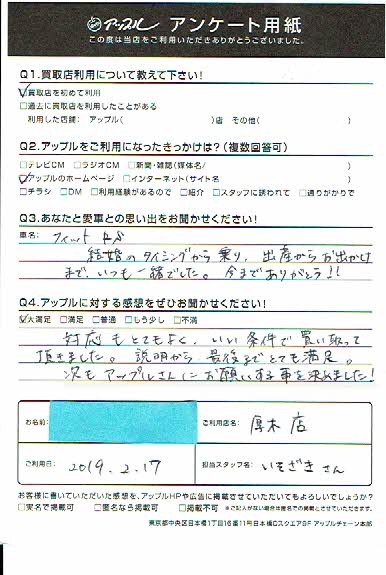 アップル アンケート用紙
この度は当店をご利用いただきありがとうございました。
Q1.買取店利用について教えて下さい!
☑買取店を初めて利用
□過去に買取店を利用したことがある
利用した店舗: アップル( )店 その他( )
Q2.アップルをご利用になったきっかけは?(複数回答可)
□テレビCM □ラジオCM □新聞・雑誌(媒体名/ )
☑アップルのホームページ □インターネット(サイト名 )
□チラシ □DM □利用経験があるので □紹介 □スタッフに誘われて □通りがかりで
Q3.あなたと愛車との思い出をお聞かせください!
車名: フィット
結婚のタイミングから乗り、出産からお出かけ
まで、いつも一緒でした。今までありがとう!!
Q4.アップルに対する感想をぜひお聞かせください!
☑大満足 □満足 □普通 □もう少し □不満
対応もとてもよく、いい条件で買い取って
頂きました。説明から最後までとても満足。
次もアップルさんにお願いする事を決めました!
お名前:
ご利用店名: 厚木店
ご利用日: 2019.2.17
担当スタッフ名: いそざきさん
お客様に書いていただいた感想を、アップルHPや広告に掲載させていただいてもよろしいでしょうか?
□実名で掲載可 □匿名なら掲載可 □掲載不可 ※ご記入がない場合は匿名での掲載とさせていただきます。
東京都中央区日本橋1丁目16番11号日本橋DスクエアSF アップルチェーン本部